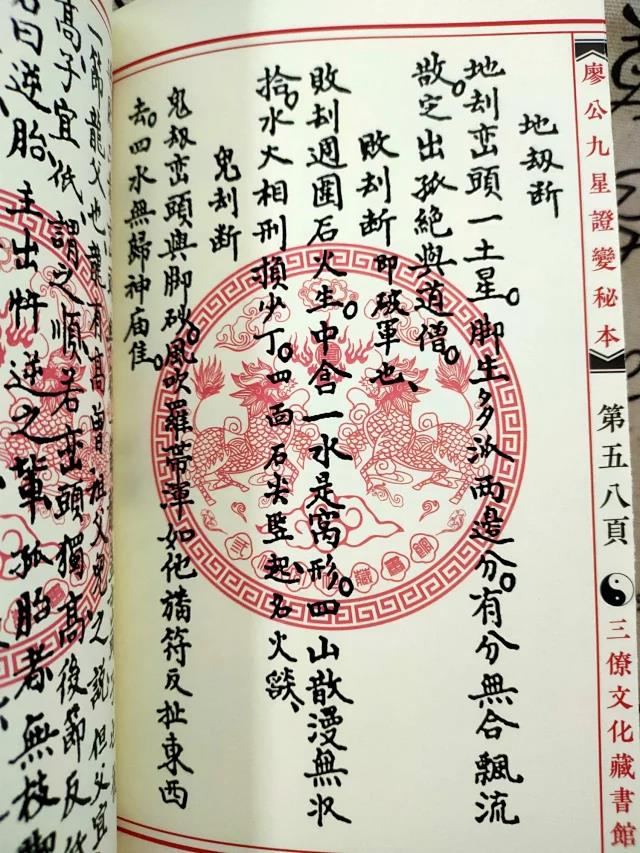 廖公九星證變秘本
第五八頁
三僚文化藏書館
地刼断
地刼峦頭一土星。脚生多派兩邊分。有分無合飄流
散。定出孤絶與道僧。
敗刼断即破軍也、
敗刼週圍石火生。中含一水是窩形。四山散漫無收
拾。水大相刑損少丁。四面石尖竪起名火燄、
鬼刼断
鬼刼峦頭與脚砂。風吹羅帯渾如他旛符反扯東西
去。四水無歸神庙佳。
一節龍父也龍有高曾祖父兒之說但父宜
高子宜低、謂之順若峦頭獨高後節反低
名曰逆胎主出忤逆之輩孤胎者無枝脚